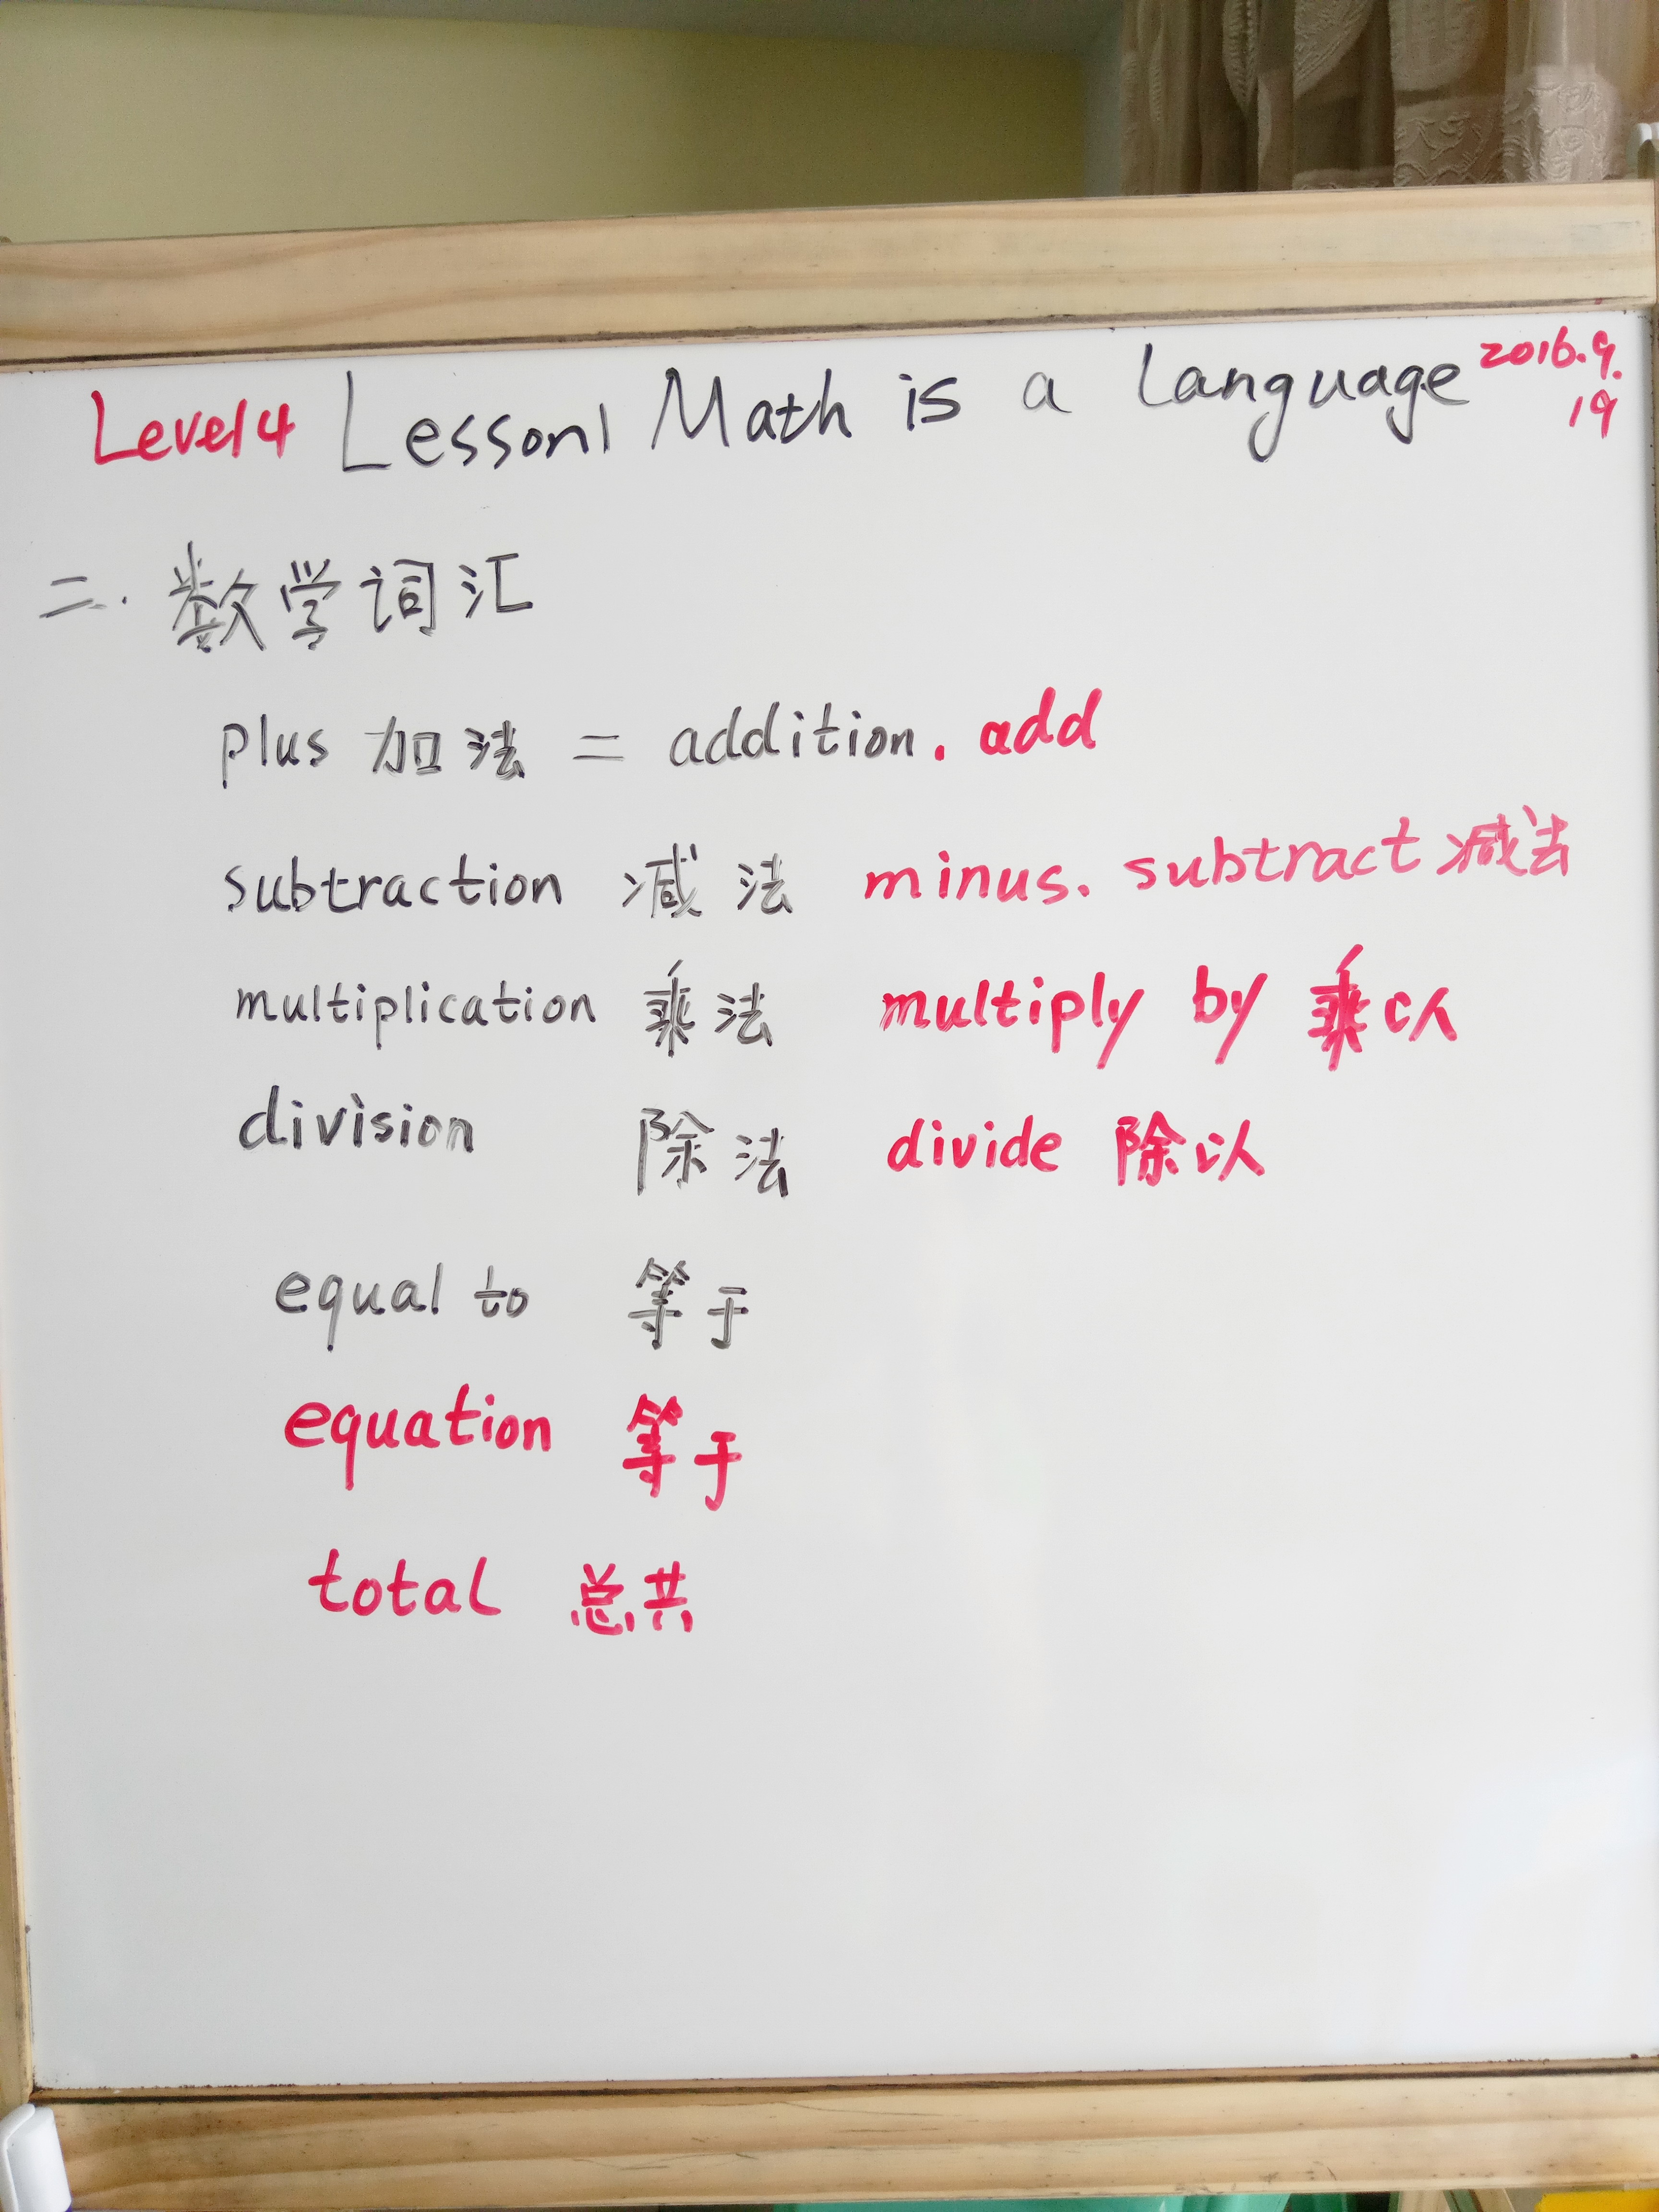 Level4 Lesson1 Math is a Language 2016.9.
19
二. 数学词汇
plus 加法 = addition. add
subtraction 减法 minus. subtract 减法
multiplication 乘法 multiply by 乘以
division 除法 divide 除以
equal to 等于
equation 等于
total 总共